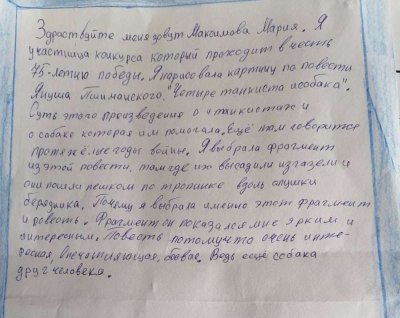 Здраствуйте меня зовут Максимова Мария. Я
участница конкурса который проходит в честь
75-летию победы. Я нарисовала картину по повести
Януша Пшимановского "Четыре танкиста и собака".
Суть этого произведения о танкистах и
о собаке которая им помогала. Ещё там говорится
про тяжёлые годы войны. Я выбрала фрагмент
из этой повести, там где их высадили из газели и
они пошли пешком по тропинке вдоль опушки
березника. Почему я выбрала именно этот фрагмент
и повесть. Фрагмент он показался мне ярким и
интересным. Повесть потому что очень инте-
ресная, впечатляющая, боевая. Ведь ещё собака
друг человека.